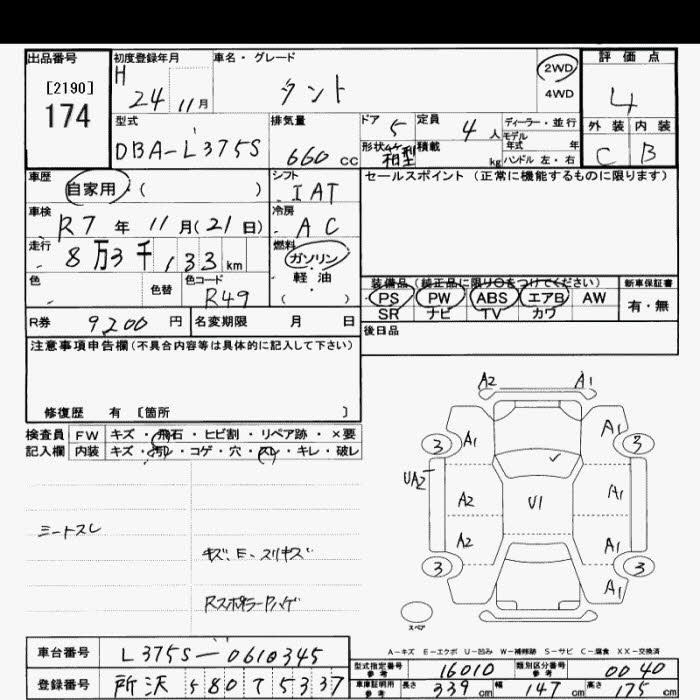 出品番号
[2190]
174
初度登録年月
H 24 11月
車名・グレード
タント
2WD
4WD
評価点
4
外装 内装
C B
型式
DBA-L375S
排気量
660 cc
ドア 5
定員 4人
ディーラー・並行
モデル
年式 年
形状 箱型
積載 kg
ハンドル 左・右
車歴
自家用 ( )
シフト
IAT
セールスポイント (正常に機能するものに限ります)
車検
R7 年 11月(21日)
冷房
AC
走行
8万3千133km
燃料
ガソリン
軽・油
( )
色
色替
色コード
R49
装備品 (純正品に限り○をつけてください)
PS PW ABS エアB AW
SR ナビ TV カワ
新車保証書
有・無
R券 9200円
名変期限 月 日
後日品
注意事項申告欄(不具合内容等は具体的に記入して下さい)
修復歴 有 〔箇所 〕
検査員
記入欄
FW キズ・飛石・ヒビ割・リペア跡・×要
内装 キズ・汚レ・コゲ・穴・スレ・キレ・破レ
シートスレ
キズ、E、スリキズ
Rスポイラーハゲ
A2 A1
3 A1 A1 3
UA2
A2 U1 A1
A2 A1
3 3
A1
スペア
A-キズ E-エクボ U-凹み W-補修跡 S-サビ C-腐食 XX-交換済
車台番号 L375S-0610345
登録番号 所沢 580 て 5337
型式指定番号
参考
16010
類別区分番号
参考
0040
車庫証明用
参考
長さ 339cm 幅 147cm 高さ 175cm